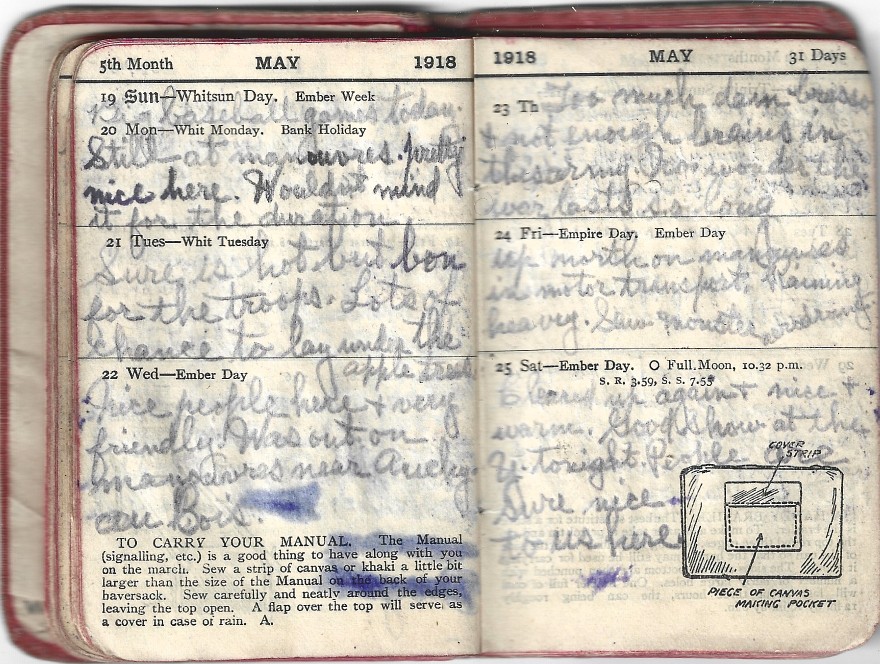 5th Month MAY 1918
19 Sun—Whitsun Day. Ember Week
Big baseball games today.
20 Mon—Whit Monday. Bank Holiday
Still at manouvres. pretty
nice here. Wouldn't mind
it for the duration
21 Tues—Whit Tuesday
Sure is hot but bon
for the troops. Lots of
chance to lay under the
apple trees
22 Wed—Ember Day
Nice people here & very
friendly. Was out on
manouvres near Auchy
au Bois.
TO CARRY YOUR MANUAL. The Manual
(signalling, etc.) is a good thing to have along with you
on the march. Sew a strip of canvas or khaki a little bit
larger than the size of the Manual on the back of your
haversack. Sew carefully and neatly around the edges,
leaving the top open. A flap over the top will serve as
a cover in case of rain. A.
1918 MAY 31 Days
23 Th Too much damn brasso
& not enough brains in
this army. Don't wonder the
war lasts so long
24 Fri—Empire Day. Ember Day
up north on manouvres
in motor transport. Raining
heavy. Saw monster aerodrome
25 Sat—Ember Day. O Full Moon, 10.32 p.m.
S. R. 3.59, S. S. 7.55
Cleared up again & nice &
warm. Good show at the
Y tonight. People are
sure nice
to us here
COVER
STRIP
PIECE OF CANVAS
MAKING POCKET